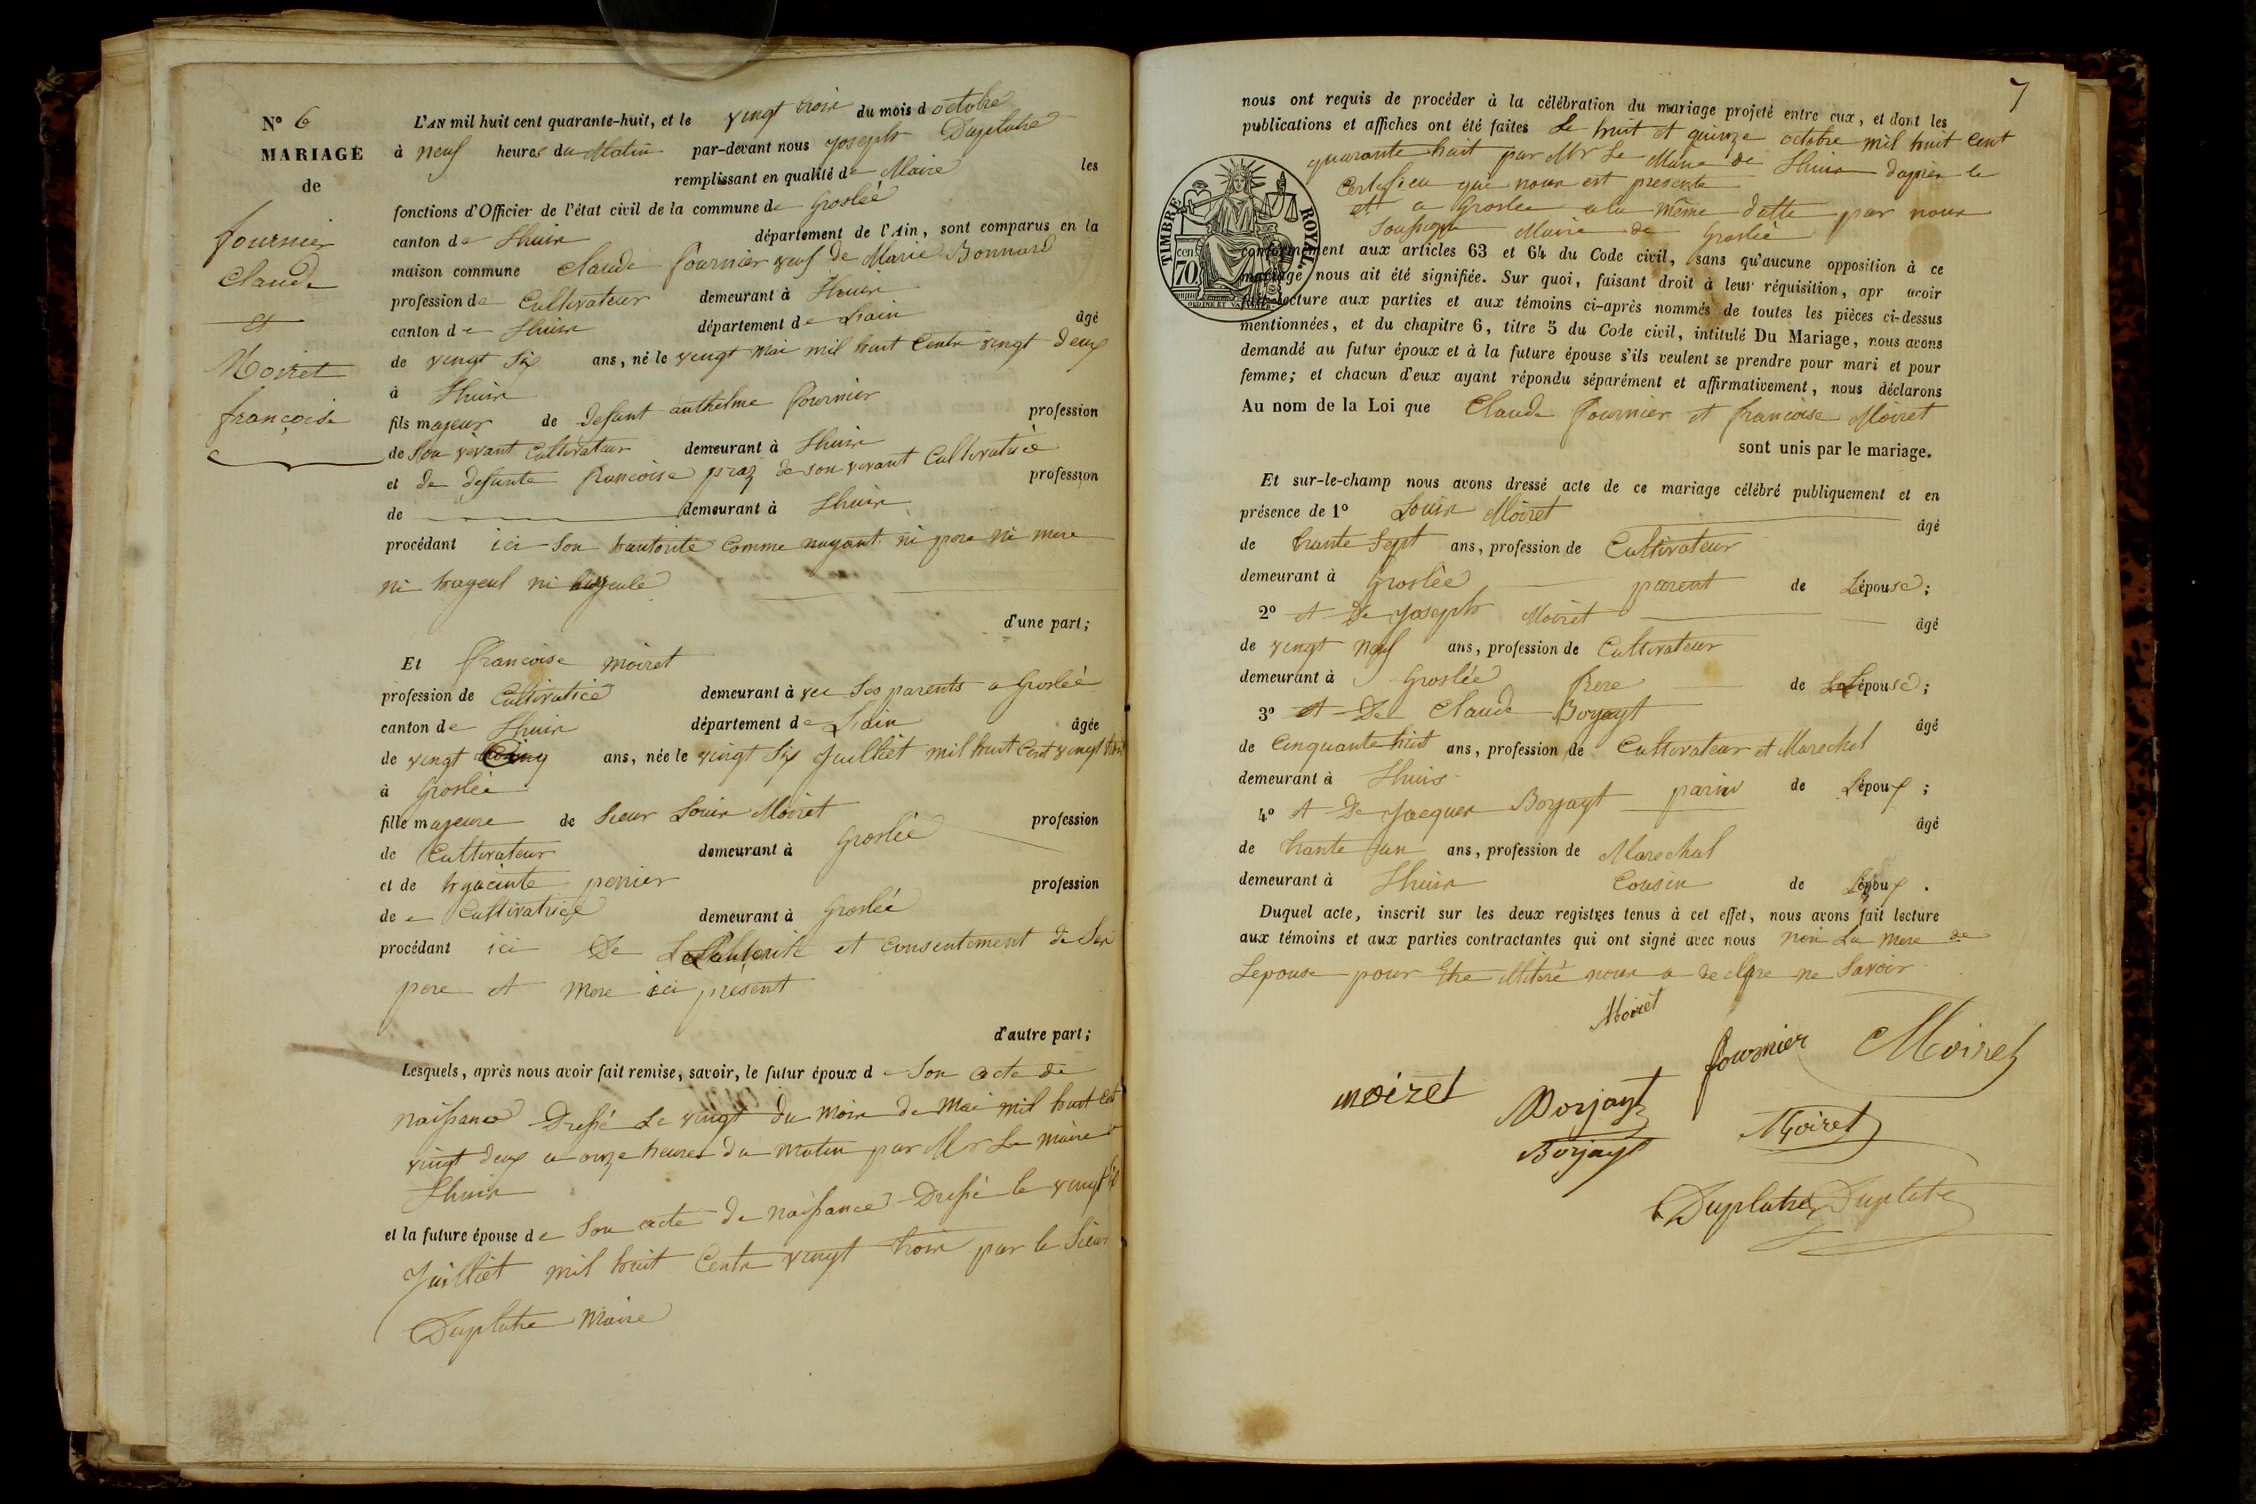 N° 6
MARIAGE
de
fournier
Claude
et
Moiret
françoise
L'AN mil huit cent quarante-huit, et le vingt trois du mois d octobre
à neuf heures du Matin par-devant nous joseph Duplatre
remplissant en qualité de Maire les
fonctions d'Officier de l'état civil de la commune de Groslée
canton de Lhuis département de l'Ain, sont comparus en la
maison commune Claude fournier veuf de Marie Bonnard
profession de Cultivateur demeurant à Lhuis
canton de Lhuis département de Lain âgé
de vingt Six ans, né le vingt Mai mil huit Cents vingt deux
à Lhuis
fils majeur de Defunt anthelme fournier profession
de Son vivant Cultivateur demeurant à Lhuis
et de defunte francoise praz de son vivant Cultivatrice profession
de demeurant à Lhuis
procédant ici Son hautorité Comme nayant ni pere ni mere
ni hayeul ni hayeule
d'une part;
Et francoise moiret
profession de Cultivatrice demeurant à vec Ses parents a Groslée
canton de Lhuis département de Lain âgée
de vingt Cinq ans, née le vingt Six Juilliet mil huit Cent vingt trois
à Groslée
fille majeure de Sieur Louis Moiret profession
de Cultivateur demeurant à Groslée
et de hyacinte perrier profession
de Cultivatrice demeurant à Groslée
procédant ici De Lautorité et Consentement de Ses
pere et Mere ici présent
d'autre part;
Lesquels, après nous avoir fait remise, savoir, le futur époux de Son acte de
naissance Dressé Le vingt du Mois de Mai mil huit Cent
vingt deux a onze heures du Matin par Mr Le Maire de
Lhuis
et la future épouse de Son acte de naissance Dressé le vingt Six
Juilliet mil huit Cents vingt trois par le Sieur
Duplatre Maire
7
nous ont requis de procéder à la célébration du mariage projeté entre eux, et dont les
publications et affiches ont été faites Le huit et quinze octobre mil huit Cent
quarante huit par Mr Le Maire de Lhuis dapres le
Certificu qui nous est presente
et a Groslée a la même datte par nous
Soussigné Maire de Groslée
TIMBRE ROYAL
70 cen
conformément aux articles 63 et 64 du Code civil, sans qu'aucune opposition à ce
mariage nous ait été signifiée. Sur quoi, faisant droit à leur réquisition, apr avoir
fait lecture aux parties et aux témoins ci-après nommés de toutes les pièces ci-dessus
mentionnées, et du chapitre 6, titre 5 du Code civil, intitulé Du Mariage, nous avons
demandé au futur époux et à la future épouse s'ils veulent se prendre pour mari et pour
femme; et chacun d'eux ayant répondu séparément et affirmativement, nous déclarons
Au nom de la Loi que Claude fournier et francoise Moiret
sont unis par le mariage.
Et sur-le-champ nous avons dressé acte de ce mariage célébré publiquement et en
présence de 1° Louis Moiret âgé
de trante Sept ans, profession de Cultivateur
demeurant à Groslée parent de Lépouse;
2° et De joseph Moiret âgé
de vingt Neuf ans, profession de Cultivateur
demeurant à Groslée frere de Lépouse;
3° et De Claude Borjayt âgé
de Cinquante huit ans, profession de Cultivateur et Marechal
demeurant à Lhuis parin de Lépoux;
4° et De Jacques Borjayt âgé
de trante un ans, profession de Marechal
demeurant à Lhuis Cousin de Lépoux.
Duquel acte, inscrit sur les deux registres tenus à cet effet, nous avons fait lecture
aux témoins et aux parties contractantes qui ont signé avec nous non La Mere de
Lepouse pour Etre illiteré nous a declare ne Savoir
Moiret
fournier Moiret
moiret Borjayt
Moiret
Borjayt
Duplatre Duplatre